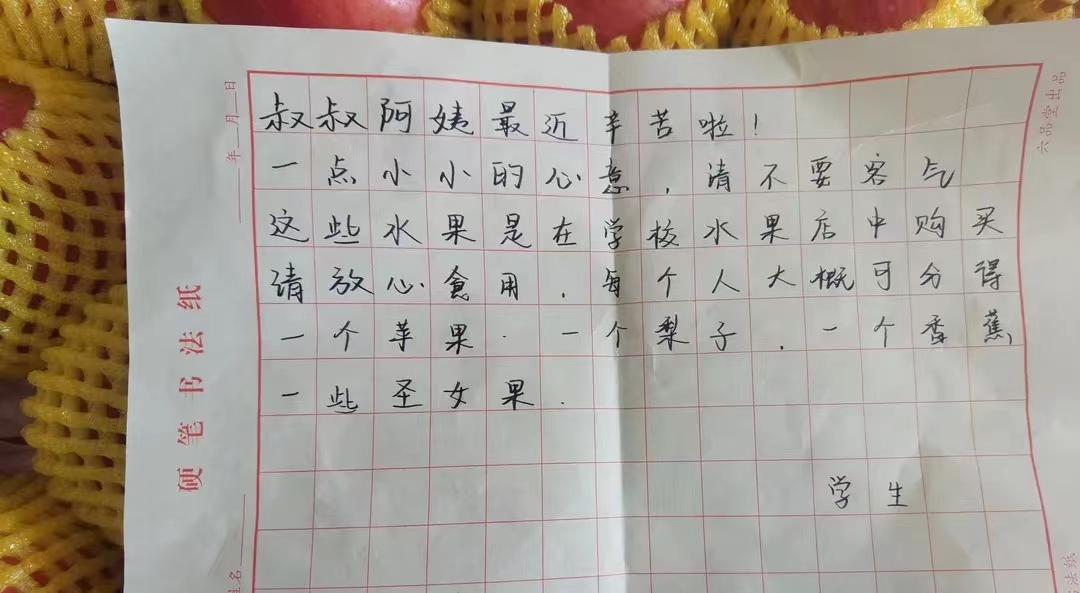 叔叔阿姨最近辛苦啦!
一点小小的心意,请不要客气
这些水果是在学校水果店中购买
请放心食用.每个人大概可分得
一个苹果.一个梨子.一个香蕉
一些圣女果.
学生
年 月 日
硬笔书法纸
姓名
六品堂出品
法纸